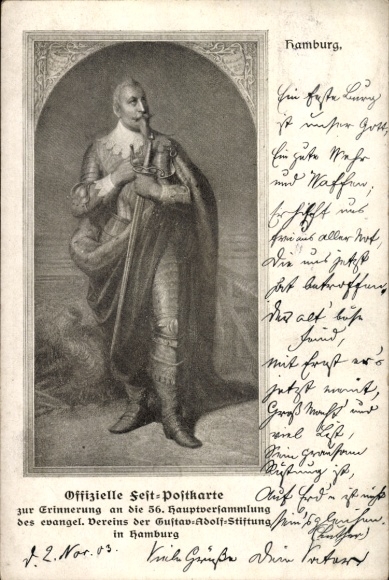 Hamburg,
Ein feste Burg
ist unser Gott,
Ein gute Wehr
und Waffen;
Er hilft uns
frei aus aller Not
Die uns jetzt
hat betroffen.
Der alt' böse
Feind,
mit Ernst er's
jetzt meint,
Groß Macht und
viel List,
Sein grausam
Rüstung ist,
Auf Erd'n ist nicht
sein's gleichen.
(Luther)
Offizielle Fest-Postkarte
zur Erinnerung an die 56. Hauptversammlung
des evangel. Vereins der Gustav-Adolf-Stiftung
in Hamburg
d. 2. Nov. 03. Viele Grüße Dein Vater